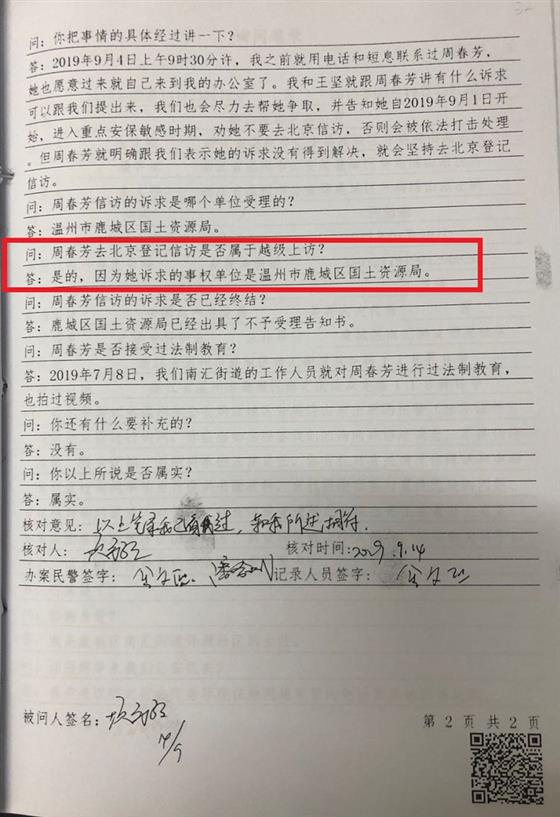 问：你把事情的具体经过讲一下？
答：2019年9月4日上午9时30分许，我之前就用电话和短息联系过周春芳，
她也愿意过来就自己来到我的办公室了。我和王坚就跟周春芳讲有什么诉求
可以跟我们提出来，我们也会尽力去帮她争取，并告知她自2019年9月1日开
始，进入重点安保敏感时期，劝她不要去北京信访，否则会被依法打击处理
。但周春芳就明确跟我们表示她的诉求没有得到解决，就会坚持去北京登记
信访。
问：周春芳信访的诉求是哪个单位受理的？
答：温州市鹿城区国土资源局。
问：周春芳去北京登记信访是否属于越级上访？
答：是的，因为她诉求的事权单位是温州市鹿城区国土资源局。
问：周春芳信访的诉求是否已经终结？
答：鹿城区国土资源局已经出具了不予受理告知书。
问：周春芳是否接受过法制教育？
答：2019年7月8日，我们南汇街道的工作人员就对周春芳进行过法制教育，
也拍过视频。
问：你还有什么要补充的？
答：没有。
问：你以上所说是否属实？
答：属实。
核对意见：以上笔录我已看过，和我所述相符.
核对人： 核对时间:2019.9.14
办案民警签字： 记录人员签字：
被问人签名： 第 2 页 共 2 页